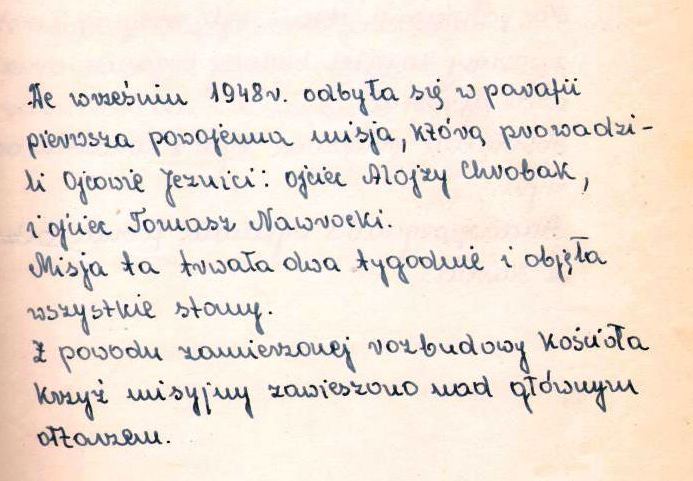 We wrześniu 1948r. odbyła się w parafii
pierwsza powojenna misja, którą prowadzi-
li Ojcowie Jezuici: ojciec Alojzy Chrobak,
i ojciec Tomasz Nawrocki.
Misja ta trwała dwa tygodnie i objęła
wszystkie stany.
Z powodu zamierzonej rozbudowy Kościoła
Krzyż misyjny zawieszono nad głównym
ołtarzem.